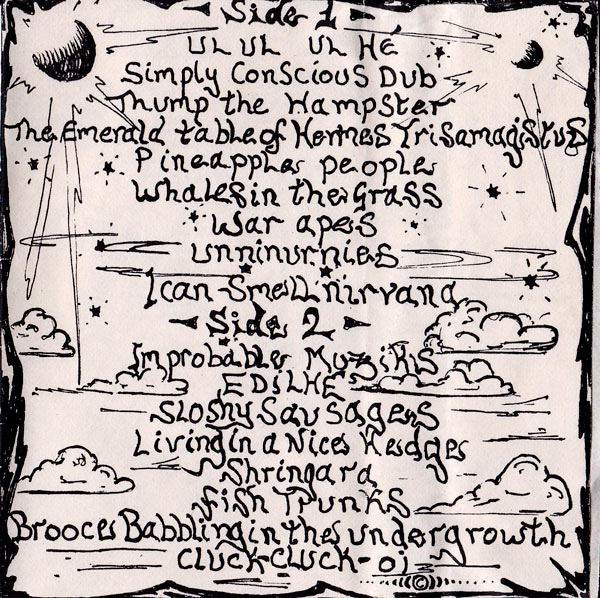 Side 1
UL UL UL HÉ
Simply Conscious Dub
Thump the Hampster
The Emerald table of Hermes Trisamagistus
Pineapple people
Whales in the Grass
War apes
unninurnies
I can Smell nirvana
Side 2
Improbable Muziks
EDILHÉ
Sloshy Sausages
Living in a Nice Hedge
Shringara
Fish Trunks
Brooce Babbling in the undergrowth
CLUCK-CLUCK-oi
©